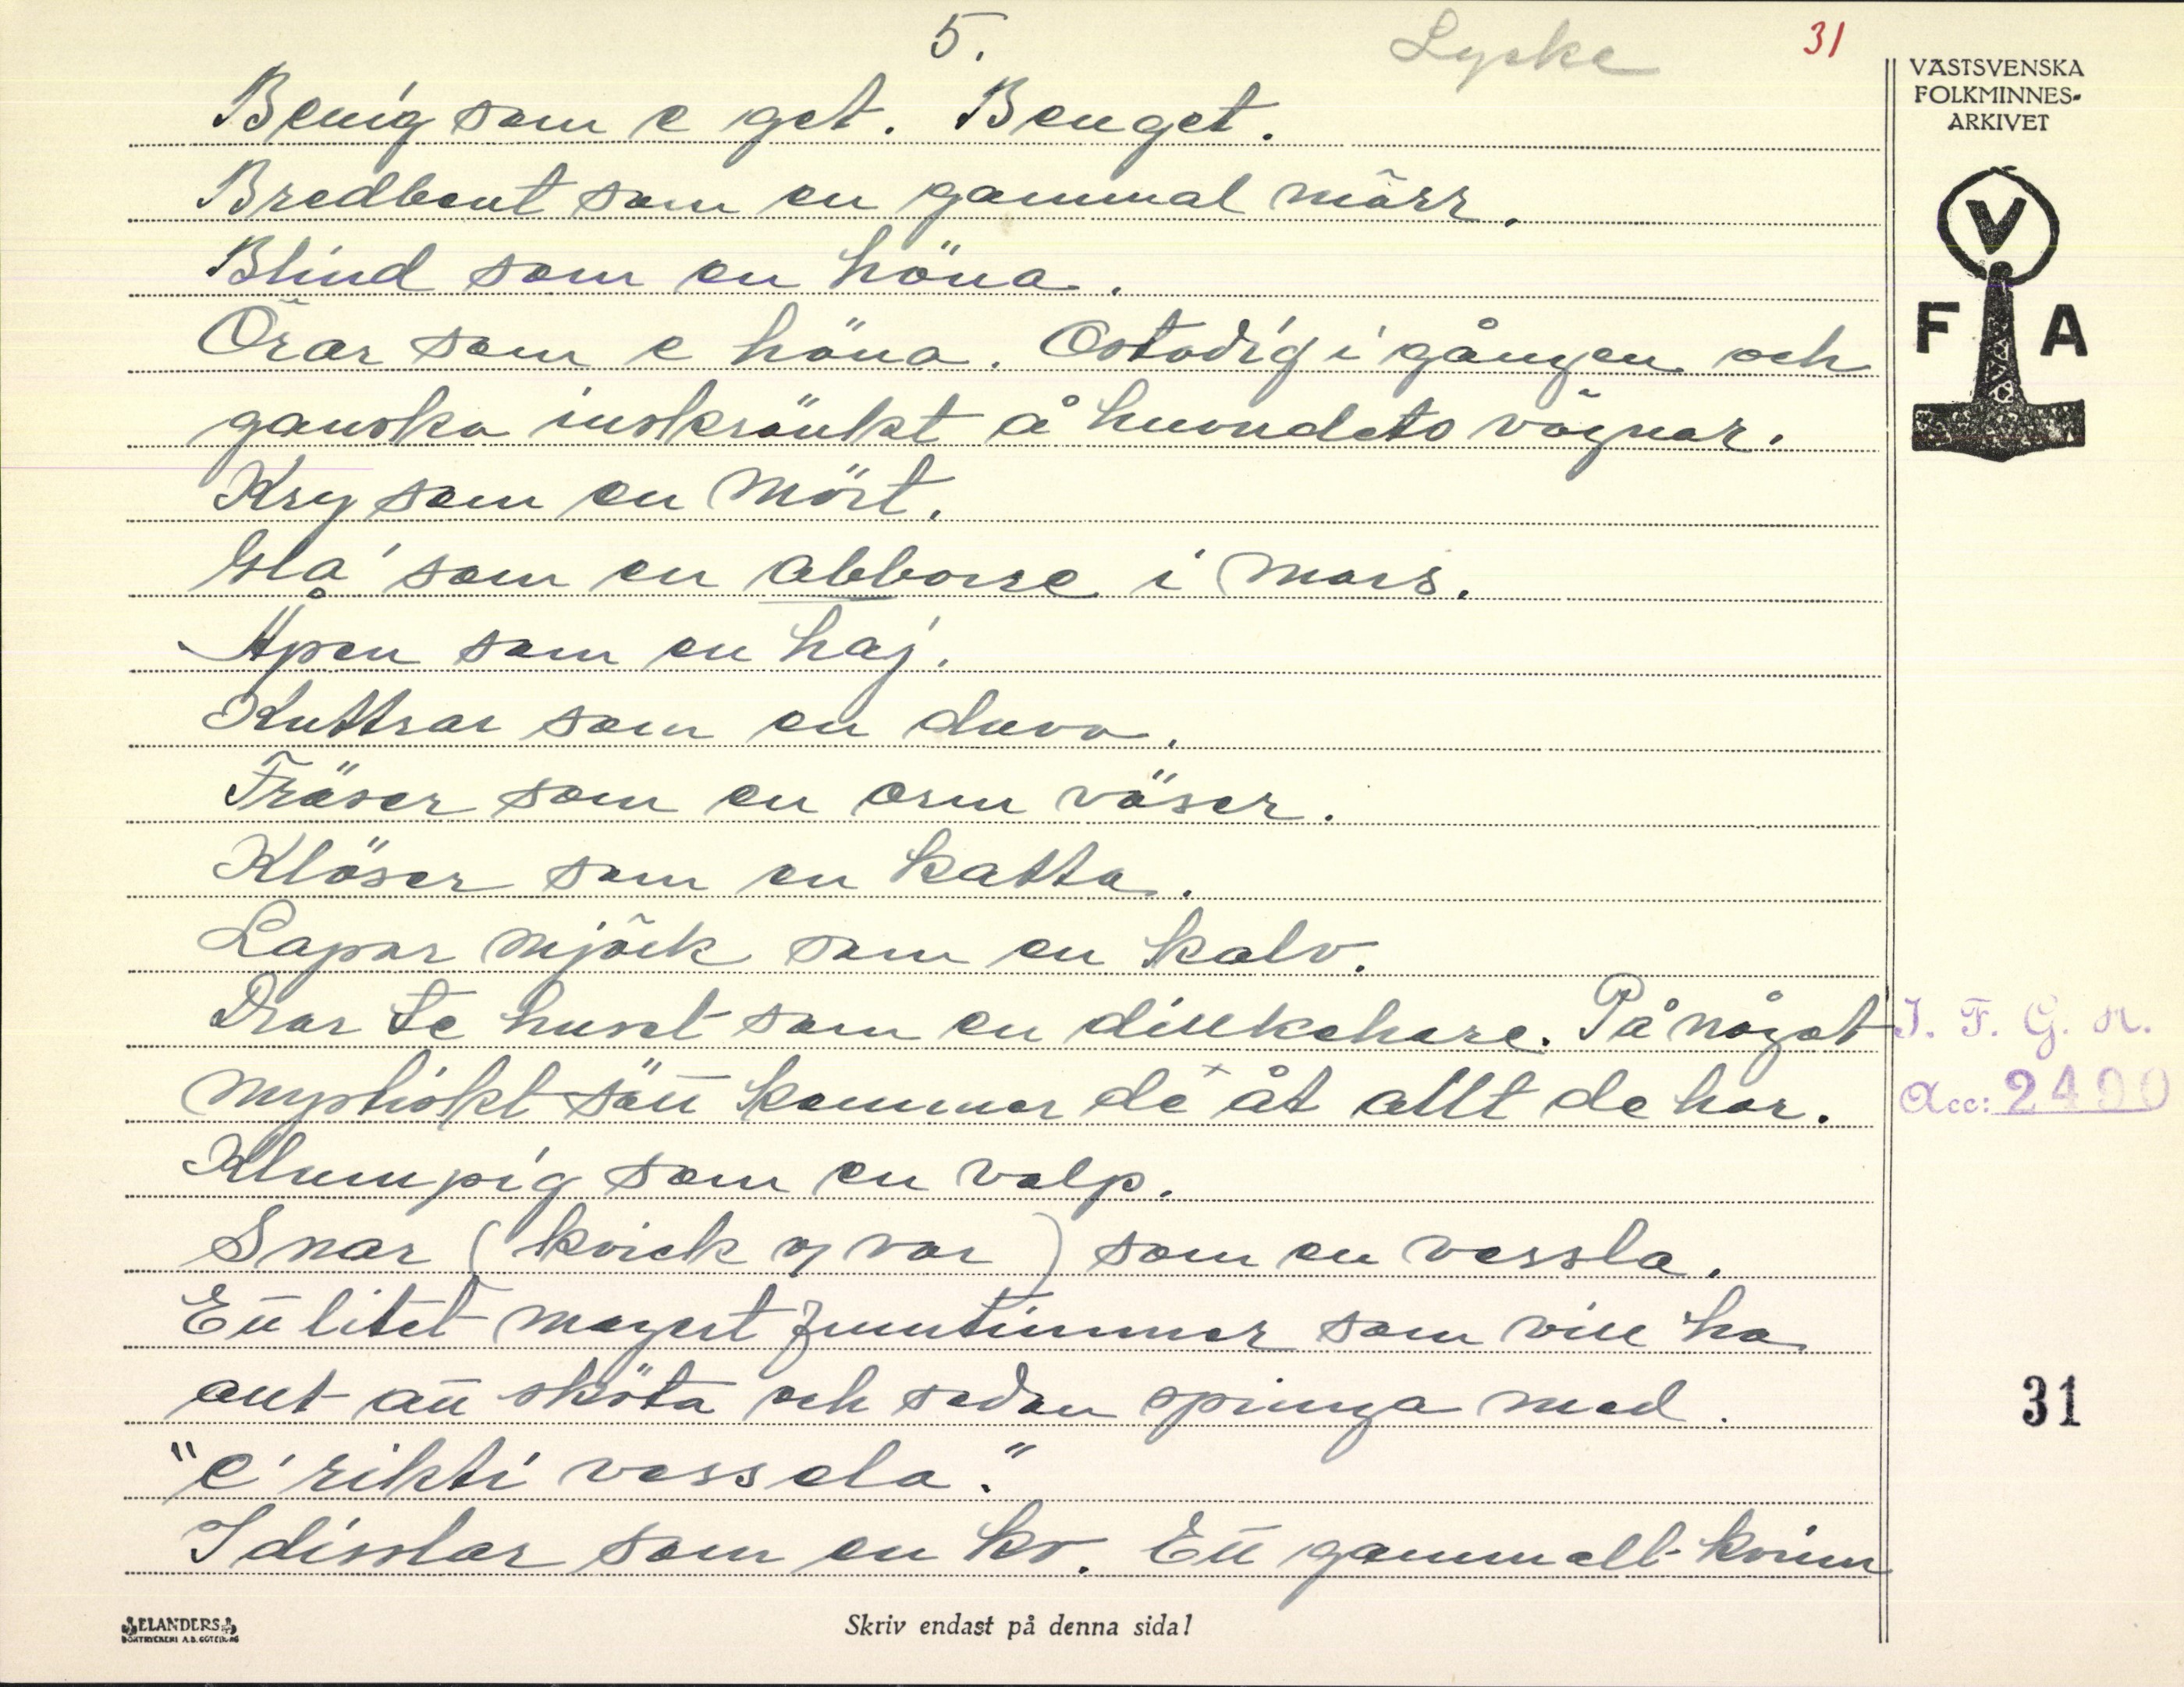 5.
Lycke
31
VÄSTSVENSKA
FOLKMINNES-
ARKIVET
V
F A
Benig som e get. Benget.
Bredbent som en gammal märr.
Blind som en höna.
Örar som e höna. Ostadig i gången och
ganska inskränkt å huvudets vägnar.
Kry som en mört.
Gla' som en abborre i mars.
Åpen som en haj.
Kuttrar som en duva.
Fräser som en orm väser.
Klöser som en katta.
Lapar mjölk som en kalv.
Drar te huset som en diskehare. På något
mystiskt sätt kommer de åt allt de har.
Klumpig som en valp.
Snar (kvick o var) som en vessla.
Ett litet magert fruntimmer som vill ha
ant att sköta och sedan springa med.
"e' rikti vessela."
Idisslar som en ko. Ett gammalt kvinn
I. F. G. H.
Acc: 2490
31
ELANDERS
BOKTRYCKERI A.B. GÖTEBORG
Skriv endast på denna sida!